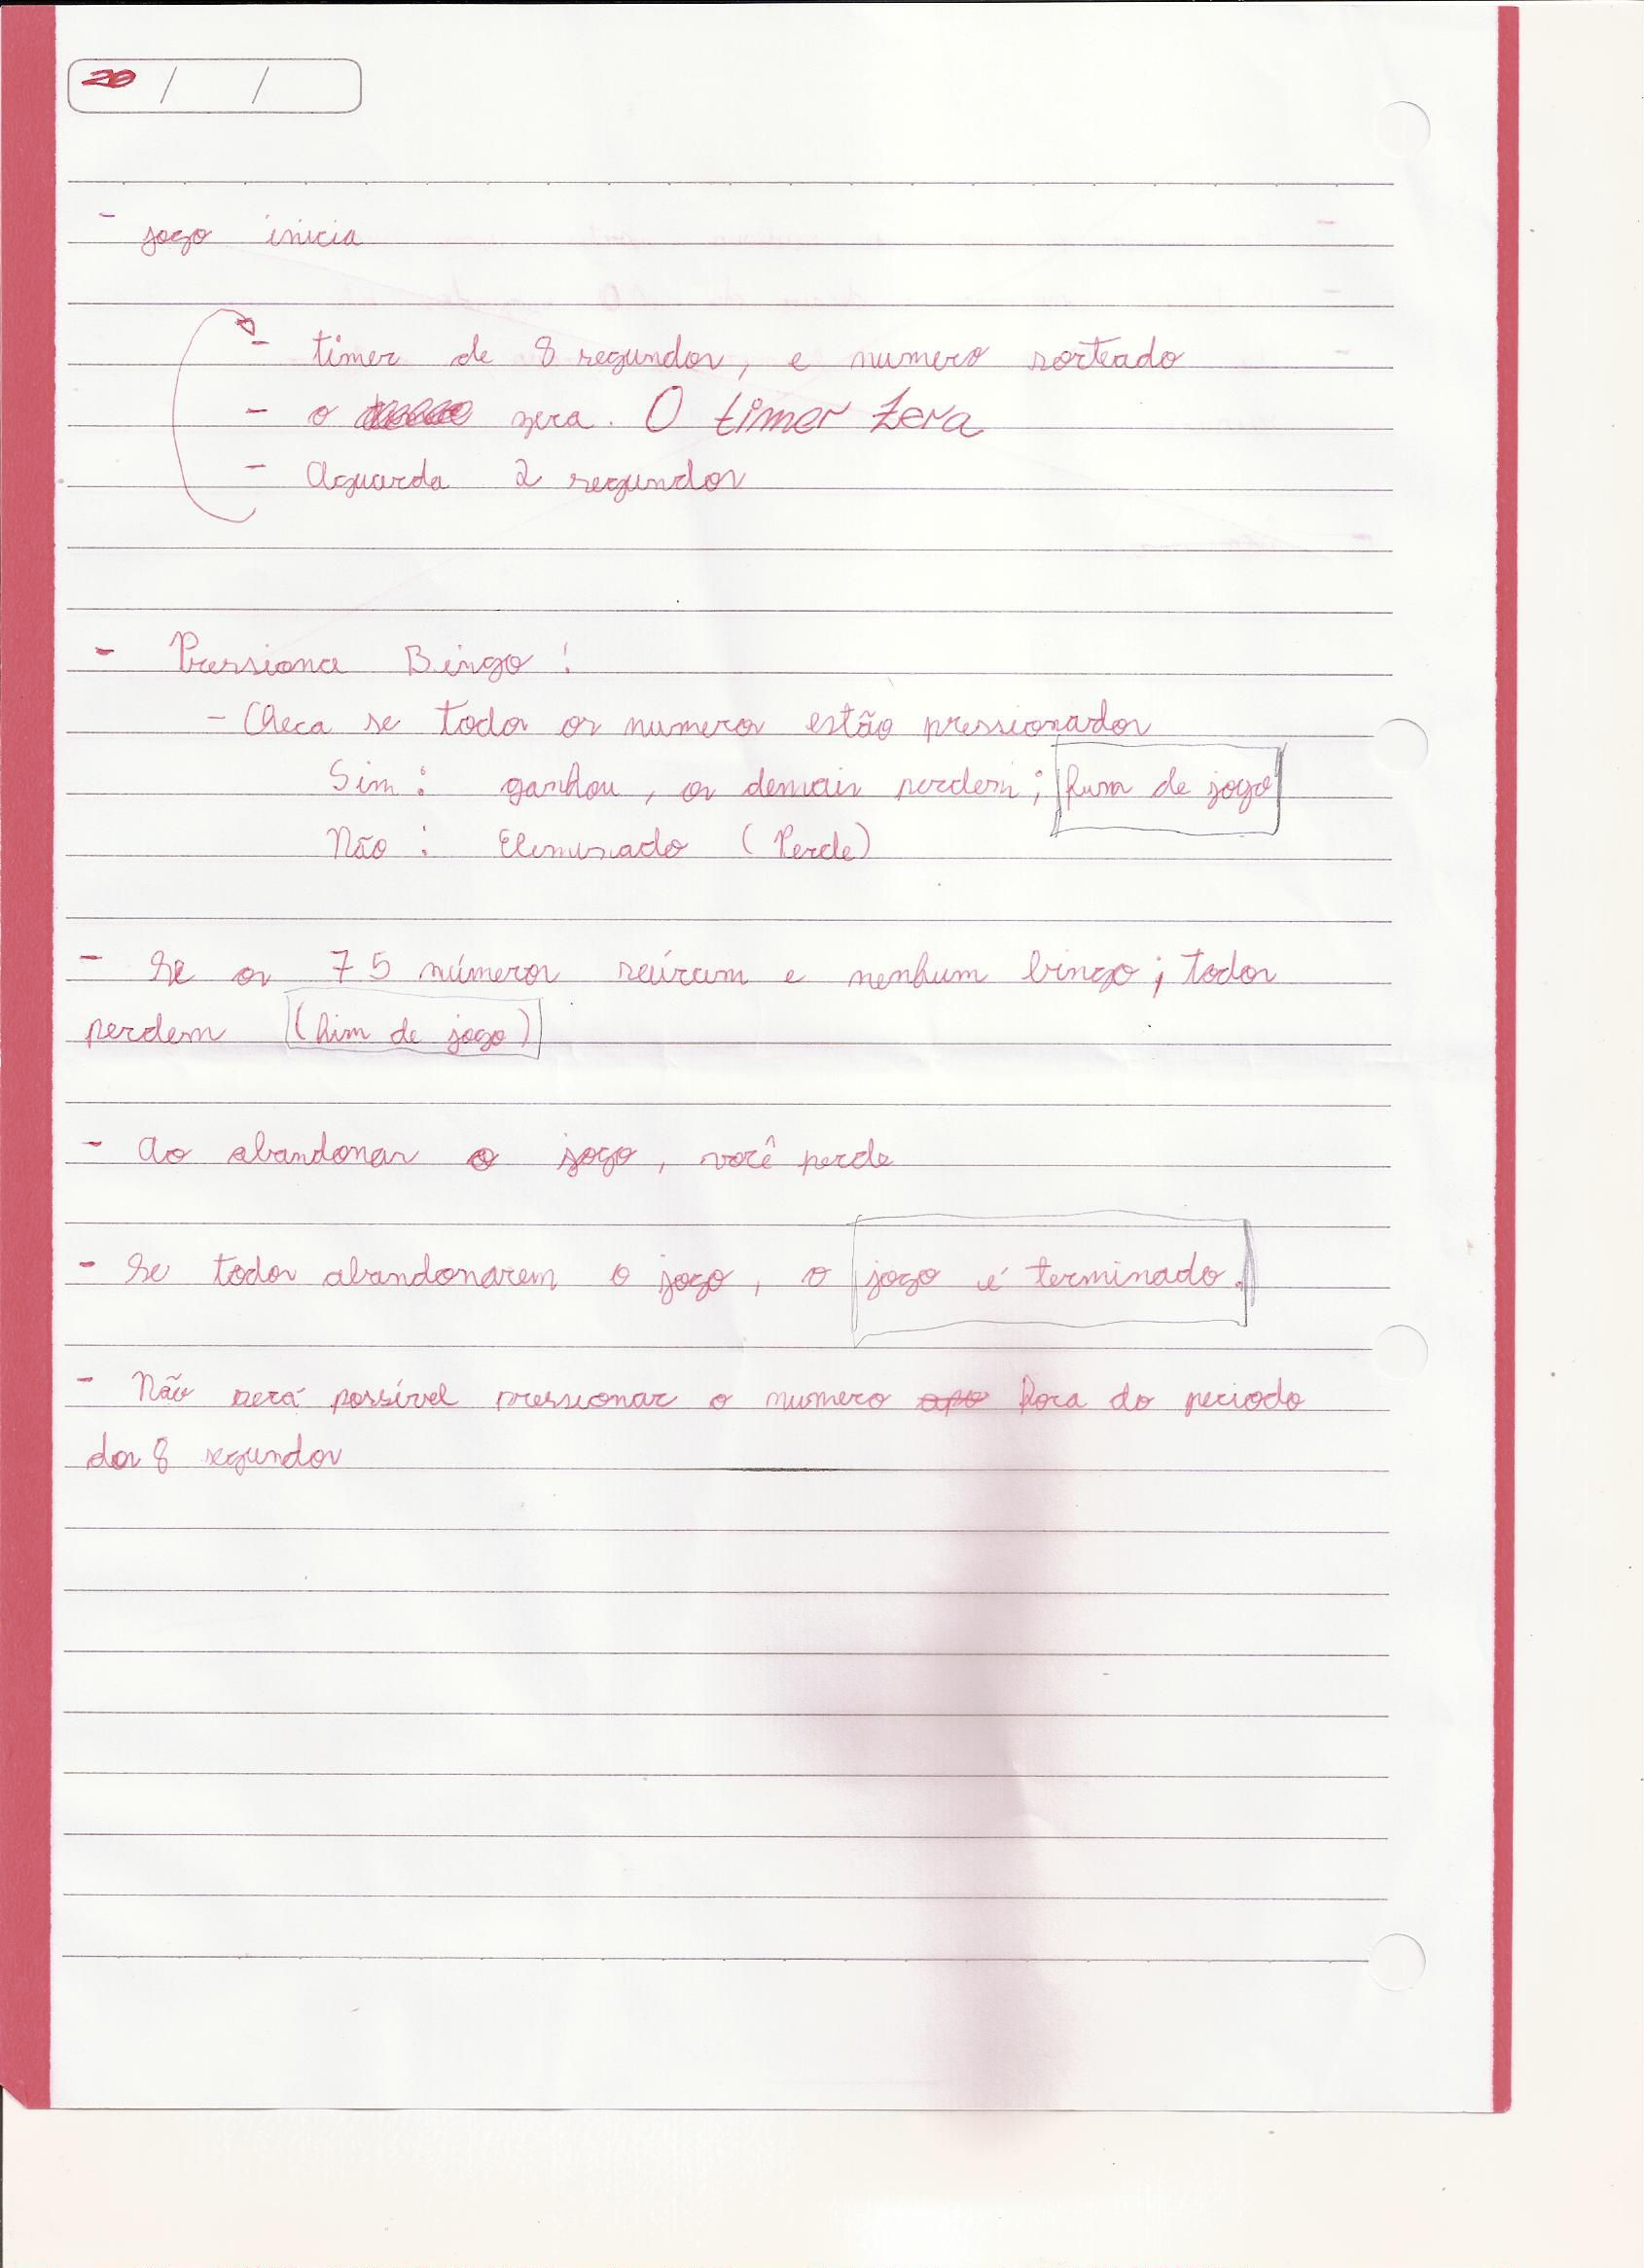 20 / /
- jogo inicia
- timer de 8 segundos, e numero sorteado
- o zera. O timer zera
- Aguarda 2 segundos
- Pressiona Bingo:
- Checa se todos os numeros estão pressionados
Sim: ganhou, os demais perdem; fim de jogo
Não: Eleminado (Perde)
- Se os 75 números saíram e nenhum bingo; todos
perdem (fim de jogo)
- Ao abandonar o jogo, você perde
- Se todos abandonarem o jogo, o jogo é terminado.
- Não será possível pressionar o numero fora do periodo
dos 8 segundos